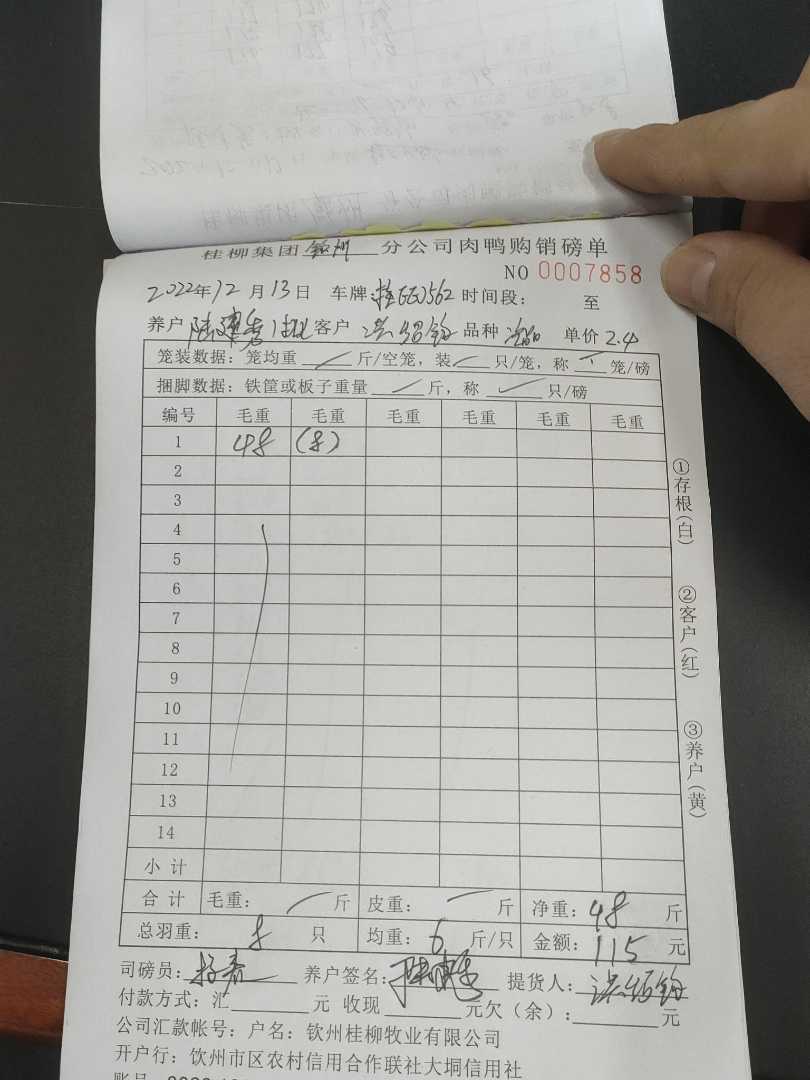 桂柳集团钦州分公司肉鸭购销磅单
NO 0007858
2022年12月13日 车牌: 时间段: 至
养户 陆建秀 客户 品种 单价 2.4
笼装数据: 笼均重 斤/空笼, 装 只/笼, 称 笼/磅
捆脚数据: 铁筐或板子重量 斤, 称 只/磅
编号 毛重 毛重 毛重 毛重 毛重 毛重
1 48 (8)
2
3
4
5
6
7
8
9
10
11
12
13
14
小计
合计 毛重: 斤 皮重: 斤 净重: 48 斤
总羽重: 8 只 均重: 6 斤/只 金额: 115 元
司磅员: 养户签名: 提货人:
付款方式: 汇 元 收现 元欠(余): 元
公司汇款帐号: 户名: 钦州桂柳牧业有限公司
开户行: 钦州市区农村信用合作联社大垌信用社
①存根(白)
②客户(红)
③养户(黄)